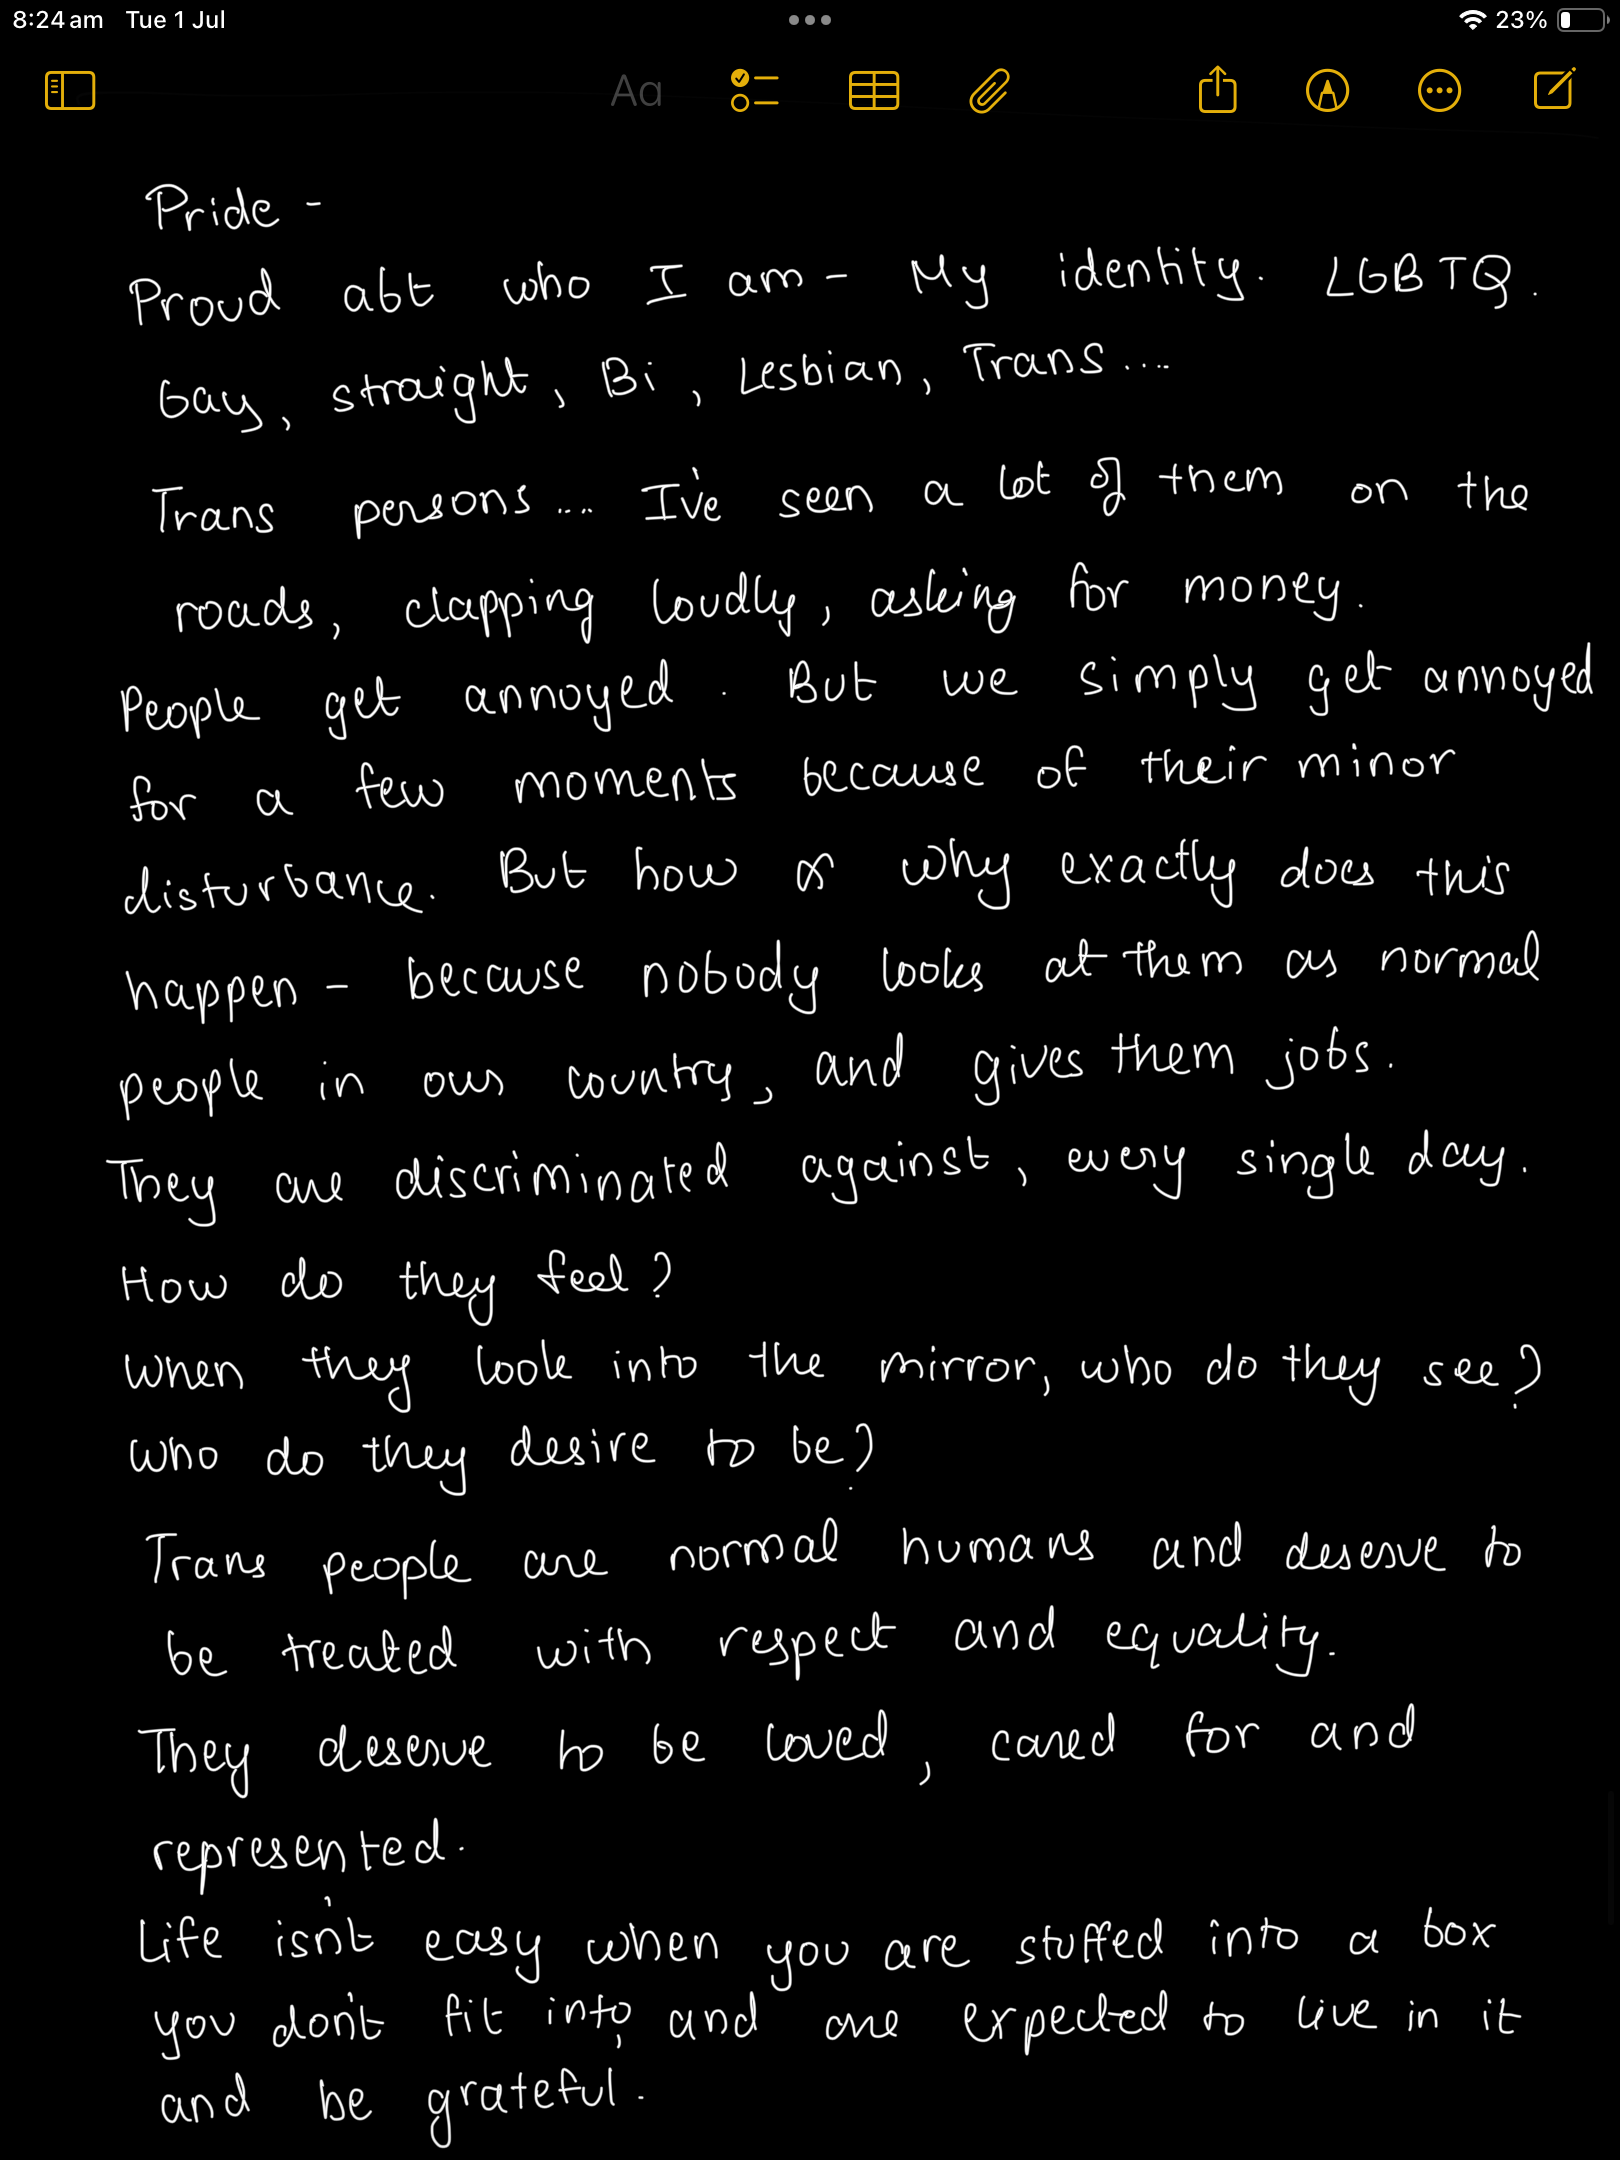 8:24 am Tue 1 Jul 23%
Aa
Pride -
Proud abt who I am - My identity. LGBTQ.
Gay, straight, Bi, Lesbian, Trans ....
Trans persons .... I've seen a lot of them on the
roads, clapping loudly, asking for money.
People get annoyed. But we simply get annoyed
for a few moments because of their minor
disturbance. But how & why exactly does this
happen - because nobody looks at them as normal
people in our country, and gives them jobs.
They are discriminated against, every single day.
How do they feel?
When they look into the mirror, who do they see?
Who do they desire to be?
Trans people are normal humans and deserve to
be treated with respect and equality.
They deserve to be loved, cared for and
represented.
Life isn't easy when you are stuffed into a box
you don't fit into, and are expected to live in it
and be grateful.